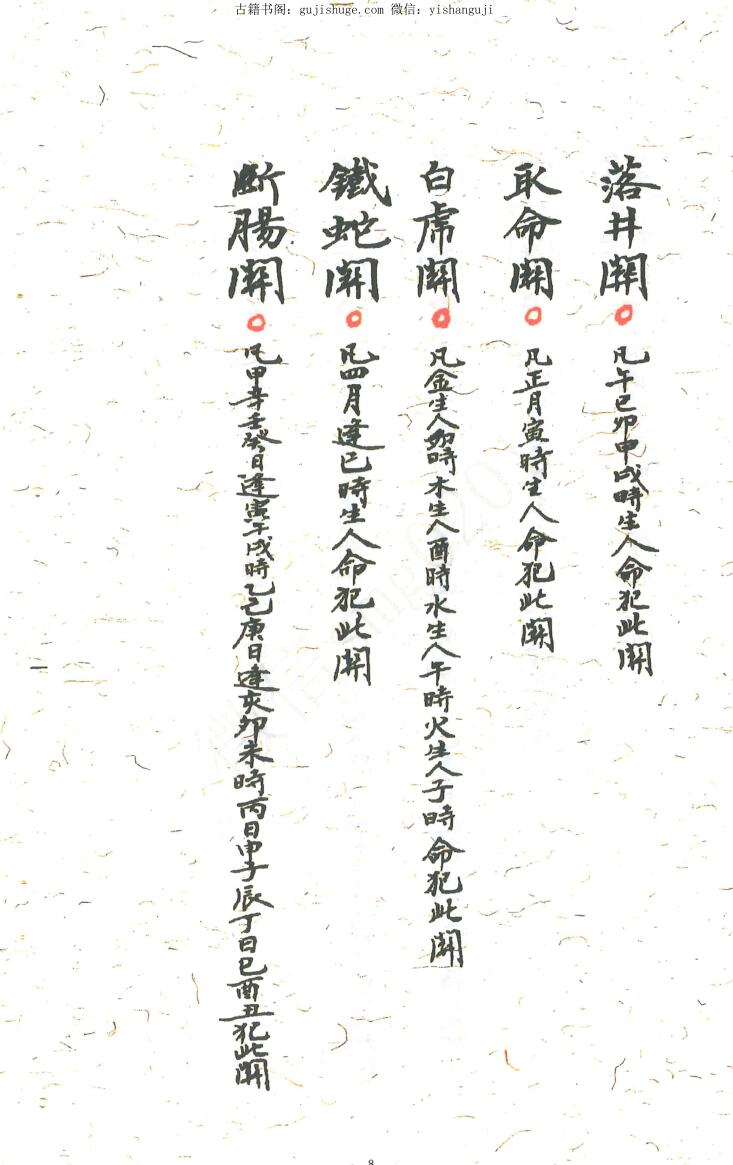 古籍书阁：gujishuge.com 微信：yishanguji
落井關 凡午巳卯申戌時生人命犯此關
取命關 凡正月寅時生人命犯此關
白虎關 凡金生人卯時木生人酉時水生人午時火生人子時命犯此關
鐵蛇關 凡四月逢巳時生人命犯此關
斷腸關 凡甲辛壬癸日逢寅午戌時乙己庚日逢亥卯未時丙日申子辰丁日巳酉丑犯此關
8